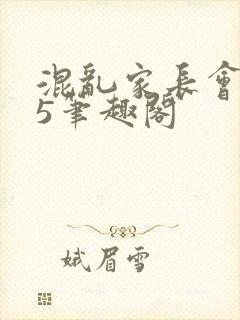 混亂家長會
5筆趣閣
娥眉雪